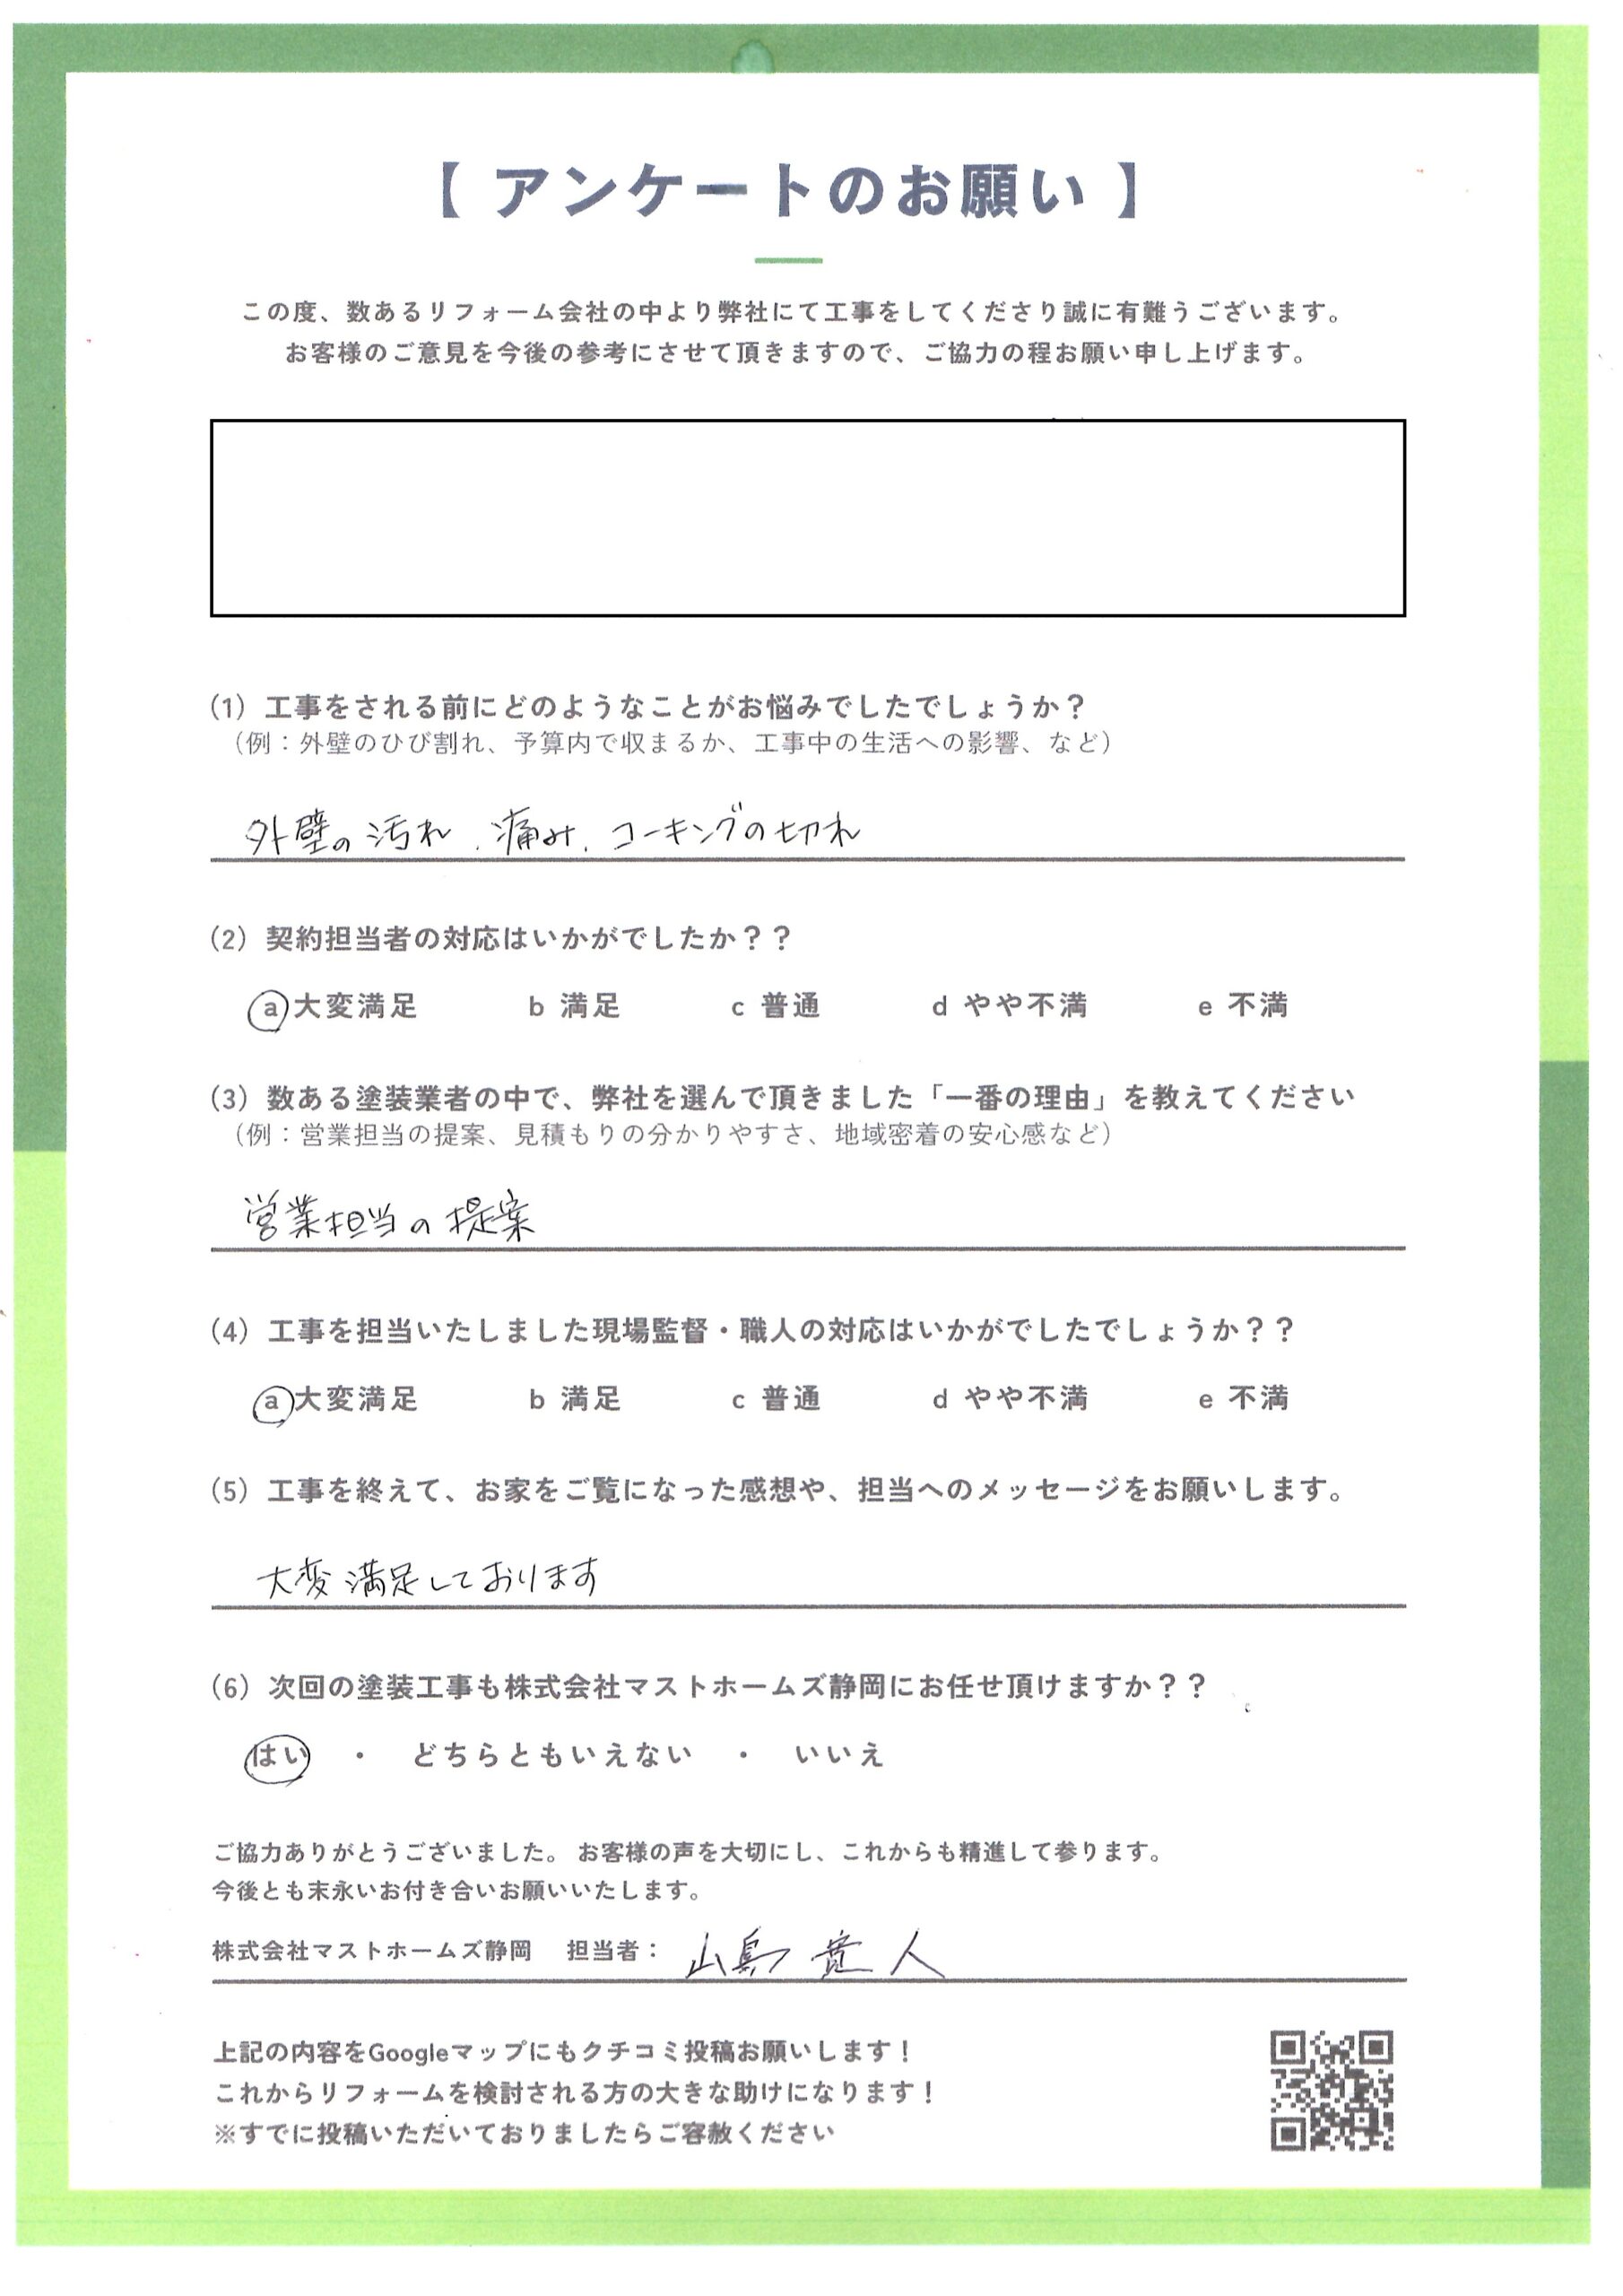 【 アンケートのお願い 】
この度、数あるリフォーム会社の中より弊社にて工事をしてくださり誠に有難うございます。
お客様のご意見を今後の参考にさせて頂きますので、ご協力の程お願い申し上げます。
(1) 工事をされる前にどのようなことがお悩みでしたでしょうか？
（例：外壁のひび割れ、予算内で収まるか、工事中の生活への影響、など）
外壁の汚れ、痛み、コーキングの切れ
(2) 契約担当者の対応はいかがでしたか？？
a 大変満足 b 満足 c 普通 d やや不満 e 不満
(3) 数ある塗装業者の中で、弊社を選んで頂きました「一番の理由」を教えてください
（例：営業担当の提案、見積もりの分かりやすさ、地域密着の安心感など）
営業担当の提案
(4) 工事を担当いたしました現場監督・職人の対応はいかがでしたでしょうか？？
a 大変満足 b 満足 c 普通 d やや不満 e 不満
(5) 工事を終えて、お家をご覧になった感想や、担当へのメッセージをお願いします。
大変満足しております
(6) 次回の塗装工事も株式会社マストホームズ静岡にお任せ頂けますか？？
はい ・ どちらともいえない ・ いいえ
ご協力ありがとうございました。 お客様の声を大切にし、これからも精進して参ります。
今後とも末永いお付き合いお願いいたします。
株式会社マストホームズ静岡 担当者： 山島 人
上記の内容をGoogleマップにもクチコミ投稿お願いします！
これからリフォームを検討される方の大きな助けになります！
※すでに投稿いただいておりましたらご容赦ください